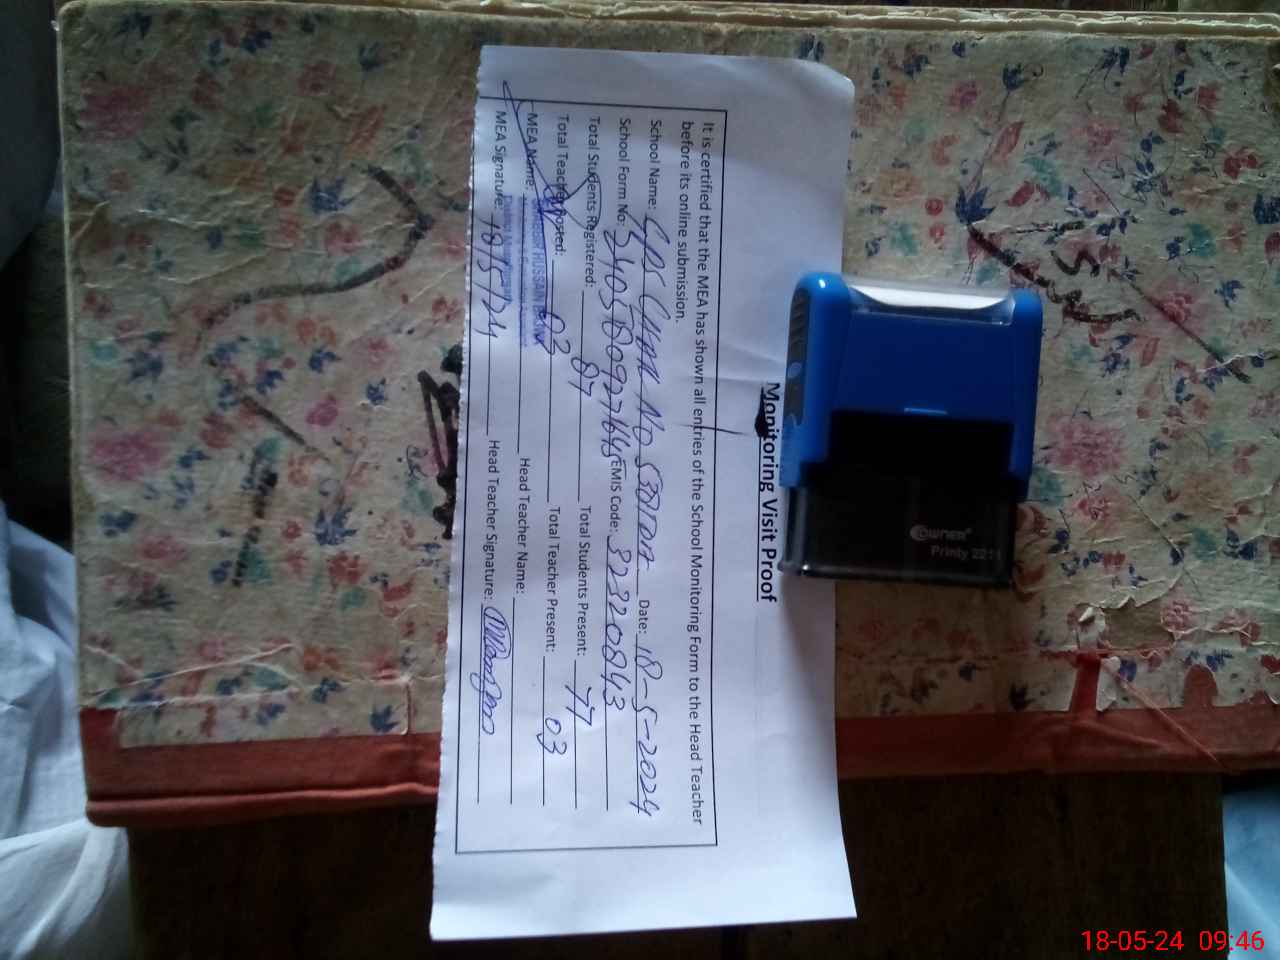 Monitoring Visit Proof
It is certified that the MEA has shown all entries of the School Monitoring Form to the Head Teacher
before its online submission.
School Name: GPS Chak No 530TDA Date: 18-5-2024
School Form No: EMIS Code: 32320843
Total Students Registered: 87 Total Students Present: 77
Total Teacher Posted: 03 Total Teacher Present: 03
MEA Name: HUSSAIN Head Teacher Name:
MEA Signature: 18/5/24 Head Teacher Signature:
OWNER
Printy 2211
18-05-24 09:46